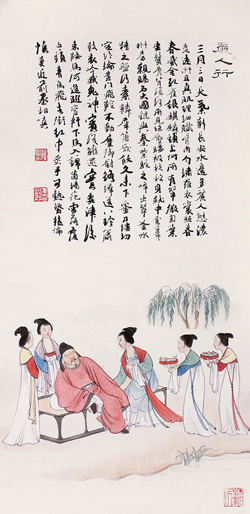 麗人行
三月三日天氣新長安水邊多麗人態濃
意遠淑且真肌理細膩骨肉勻繡羅衣裳照暮
春蹙金孔雀銀麒麟頭上何所有翠微㔩葉
垂鬢唇背後何所見珠壓腰衱穩稱身就中雲幕
椒房親賜名大國虢與秦紫駝之峰出翠釜水
精之盤行素鱗犀箸厭飫久未下鸞刀縷切
空紛綸黃門飛鞚不動塵御廚絡繹送八珍簫
鼓哀吟感鬼神賓從雜遝實要津後
來鞍馬何逡巡當軒下馬入錦茵楊花雪落覆
白蘋青鳥飛去銜紅巾炙手可熱勢絕倫
慎莫近前丞相嗔